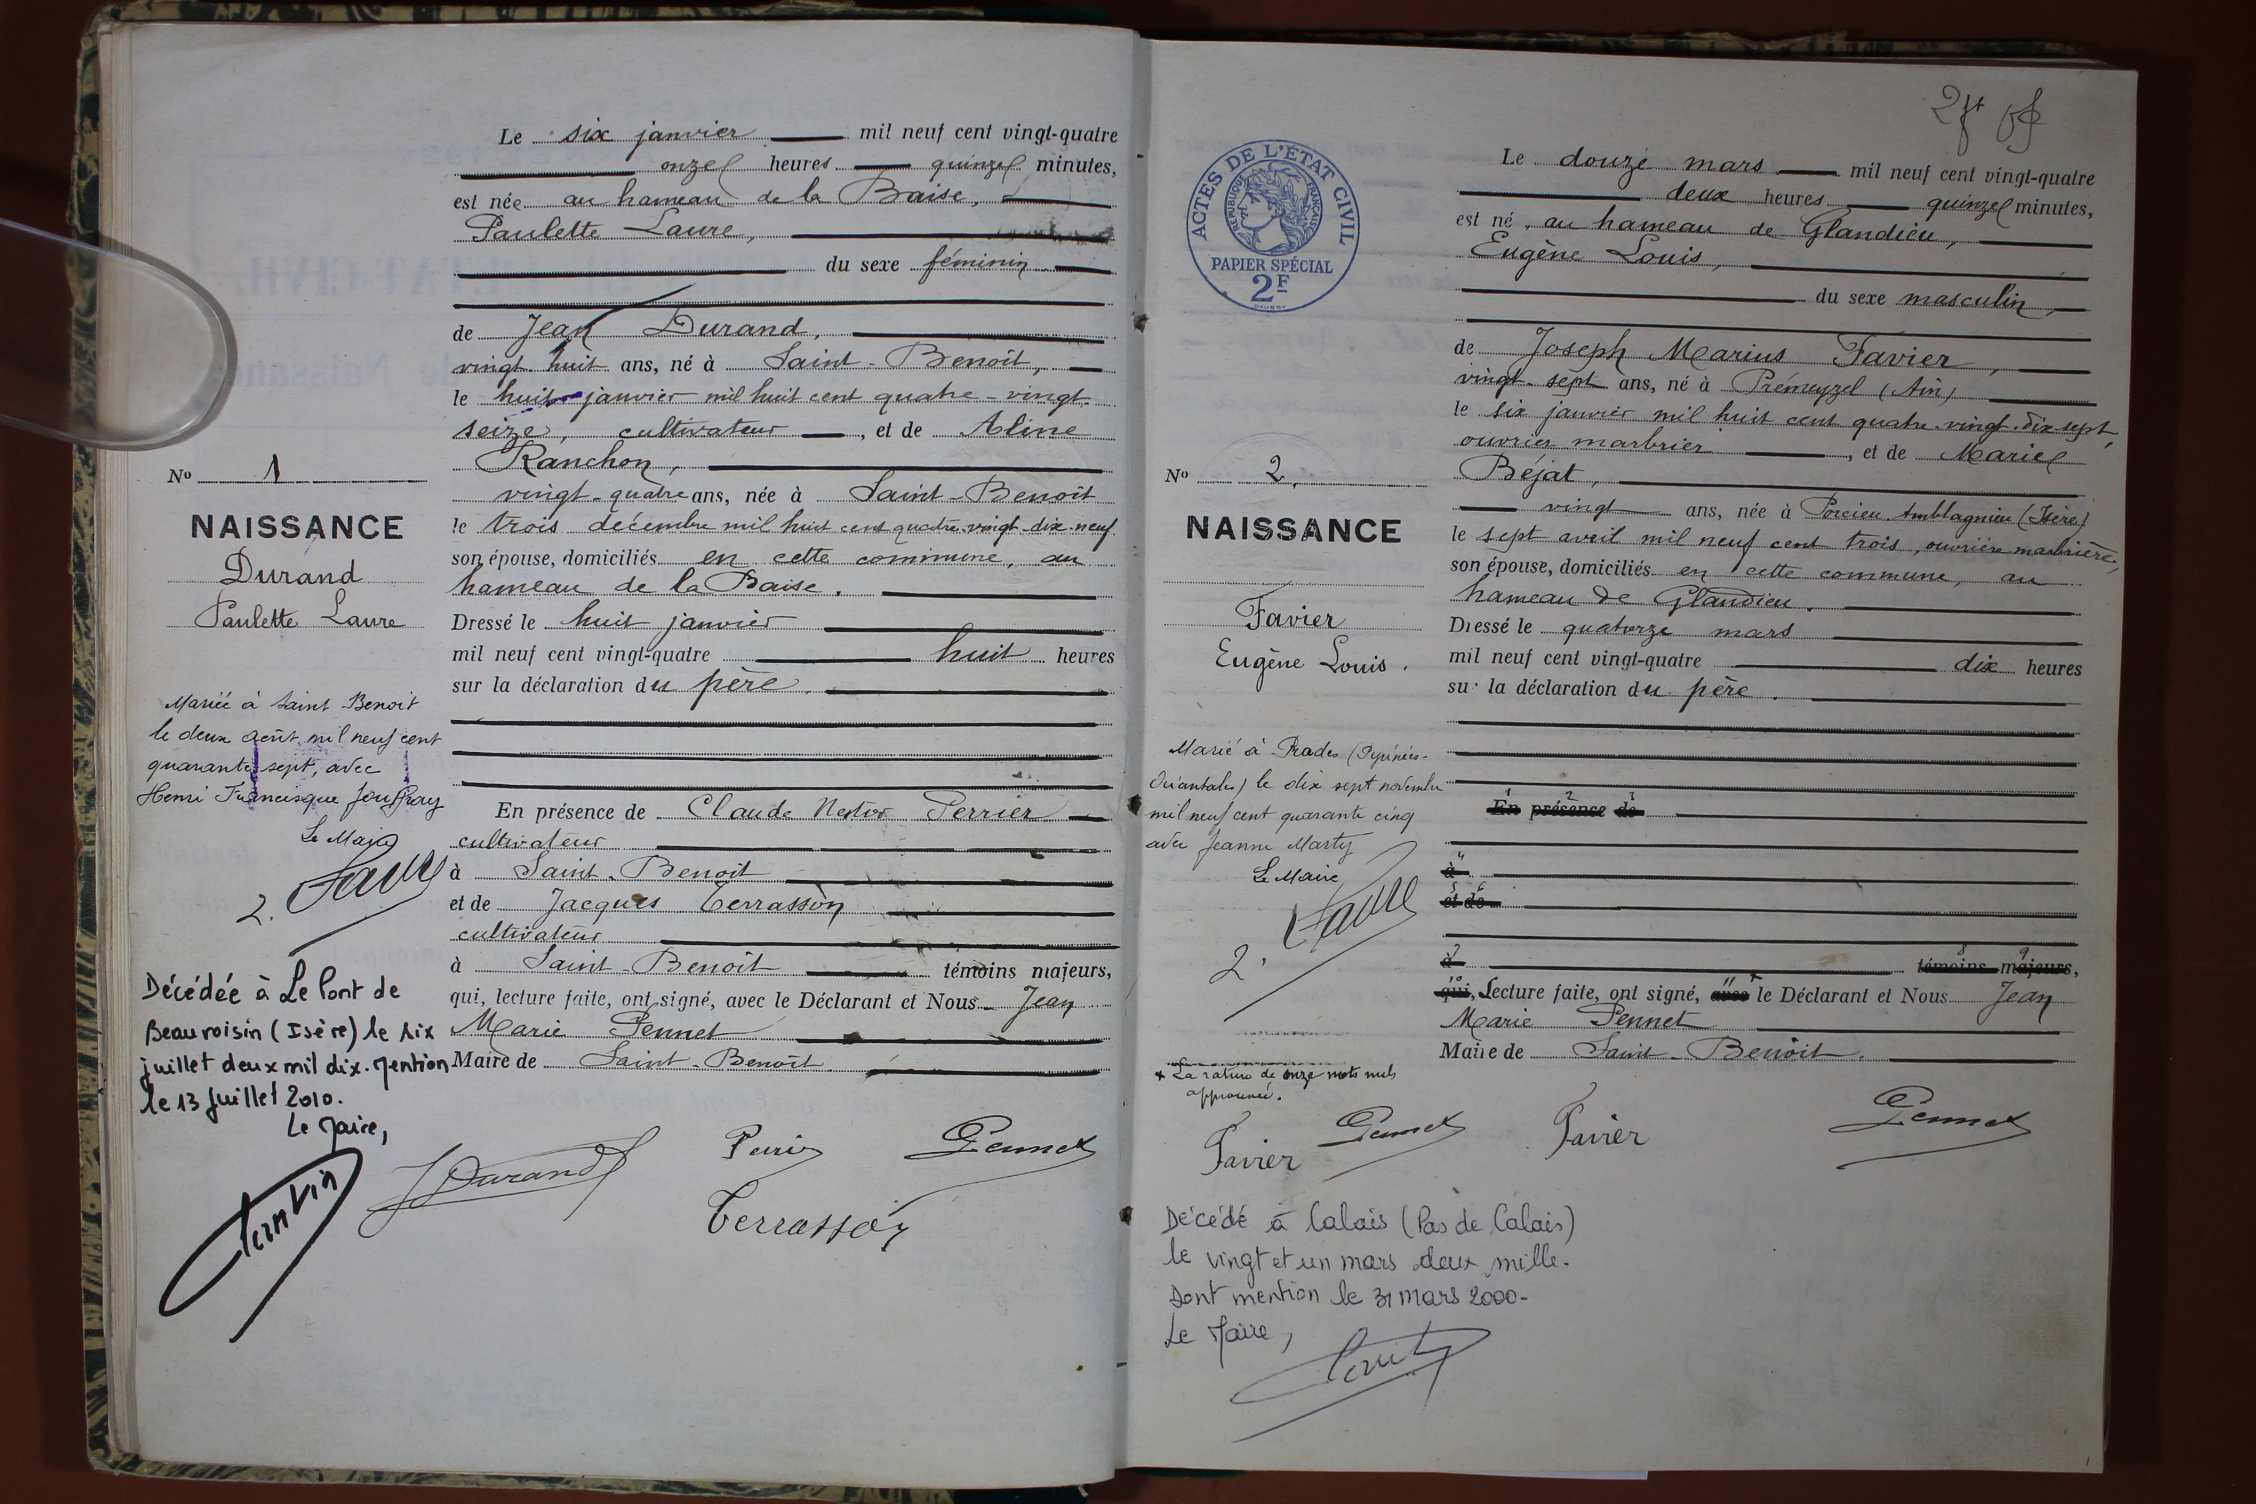 Le six janvier mil neuf cent vingt-quatre
onze heures quinze minutes,
est née au hameau de la Baise,
Paulette Laure,
du sexe féminin
de Jean Durand,
vingt huit ans, né à Saint-Benoît,
le huit janvier mil huit cent quatre-vingt-
seize, cultivateur, et de Aline
Ranchon,
vingt-quatre ans, née à Saint-Benoit
le trois décembre mil huit cent quatre-vingt-dix-neuf
son épouse, domiciliés en cette commune, au
hameau de la Baise.
Dressé le huit janvier
mil neuf cent vingt-quatre huit heures
sur la déclaration du père.
En présence de Claude Nestor Perrier
cultivateur
à Saint-Benoit
et de Jacques Terrasson
cultivateur
à Saint-Benoit témoins majeurs,
qui, lecture faite, ont signé, avec le Déclarant et Nous Jean
Marie Pennet
Maire de Saint-Benoît.
JDurand
Perrier
Pennet
Terrasson
No 1
NAISSANCE
Durand
Paulette Laure
Mariée à Saint-Benoit
le deux août mil neuf cent
quarante sept, avec
Henri Francisque Jouffray
Le Maire
2.
Décédée à Le Pont de
Beauvoisin (Isère) le six
juillet deux mil dix. Mention
le 13 juillet 2010.
Le Maire,
2
Le douze mars mil neuf cent vingt-quatre
deux heures quinze minutes,
est né, au hameau de Glandieu,
Eugène Louis,
du sexe masculin,
de Joseph Marius Favier,
vingt-sept ans, né à Prémeyzel (Ain)
le six janvier mil huit cent quatre-vingt-dix sept,
ouvrier marbrier, et de Marie
Béjat,
vingt ans, née à Porcieu Amblagnieu (Isère)
le sept avril mil neuf cent trois, ouvrière marbrière,
son épouse, domiciliés en cette commune, au
hameau de Glandieu.
Dressé le quatorze mars
mil neuf cent vingt-quatre dix heures
sur la déclaration du père.
1 2 3
En présence de
4
à
5 6
et de
7 8 9
à témoins majeurs,
10 11
qui, Lecture faite, ont signé, avec le Déclarant et Nous Jean
Marie Pennet
Maire de Saint-Benoît.
Favier
Pennet
ACTES DE L'ÉTAT CIVIL
RÉPUBLIQUE FRANÇAISE
PAPIER SPÉCIAL
2F
No 2.
NAISSANCE
Favier
Eugène Louis.
Marié à Prades (Pyrénées-
Orientales) le dix sept novembre
mil neuf cent quarante cinq
avec Jeanne Marty
Le Maire
2.
+ La rature de onze mots nuls
approuvée.
Favier
Pennet
Décédé à Calais (Pas de Calais)
le vingt et un mars deux mille.
Dont mention le 31 mars 2000-
Le Maire,